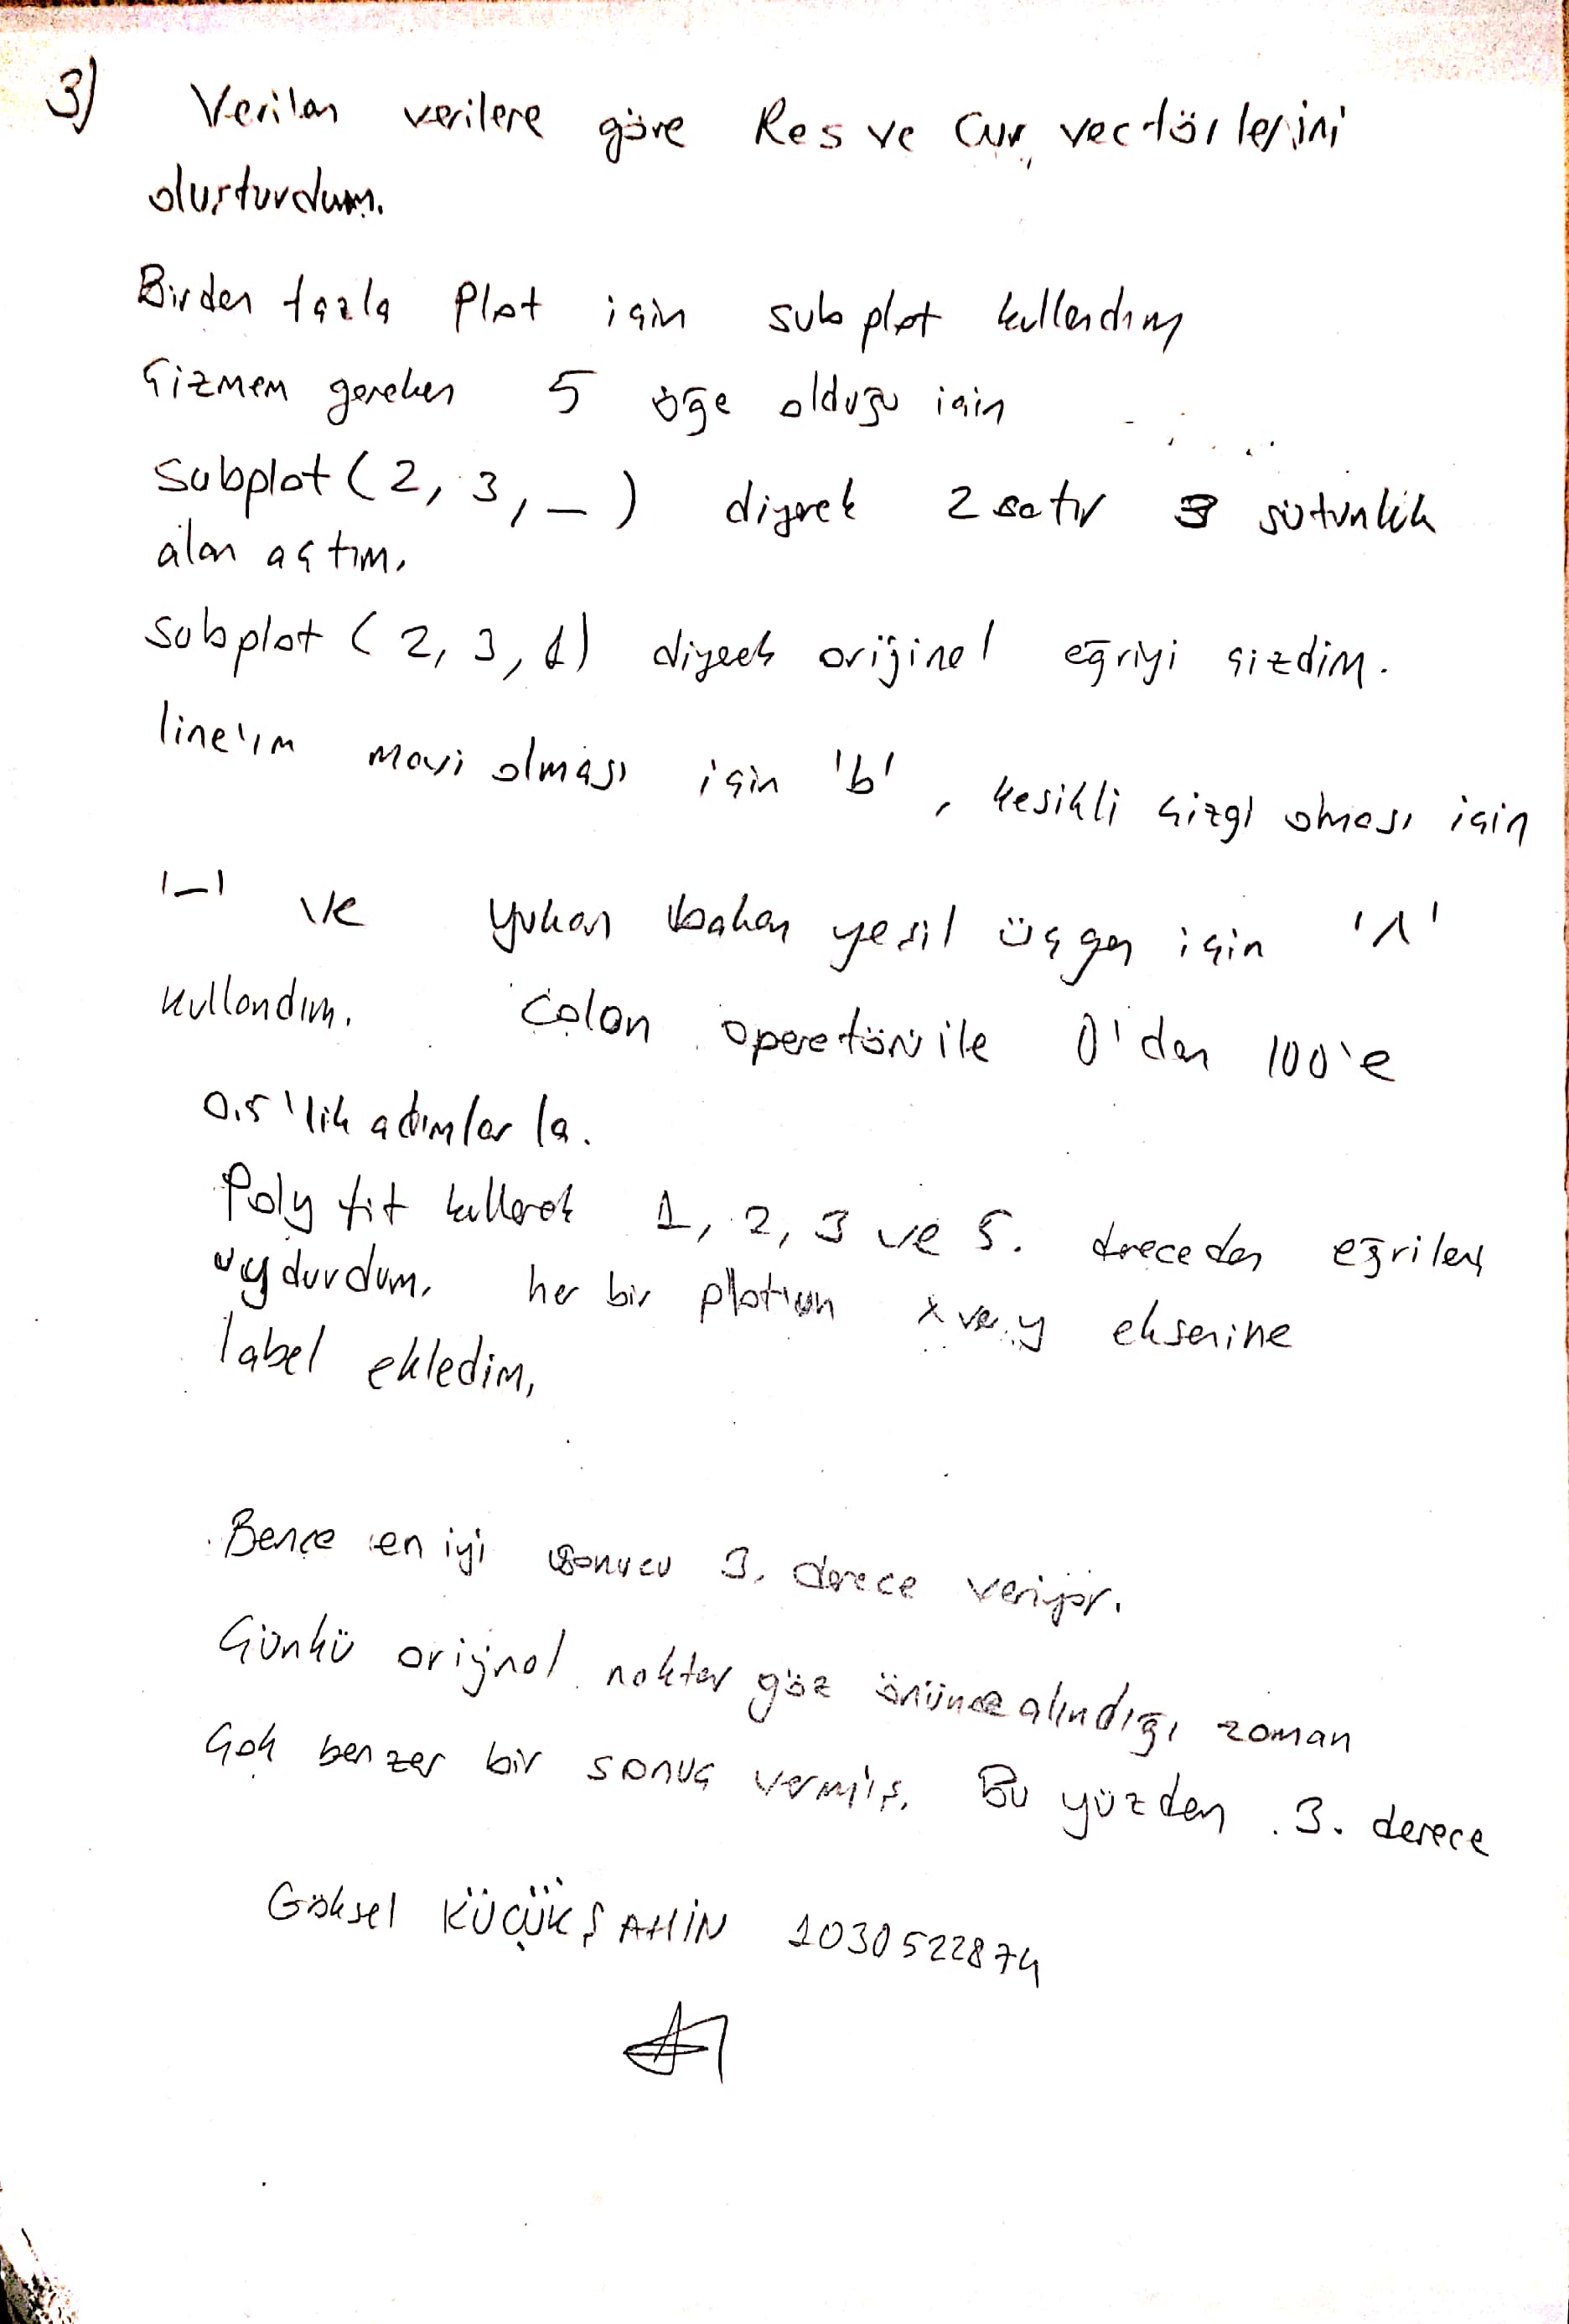 3) Verilen verilere göre Res ve Cur vectörlerini
oluşturdum.
Birden fazla Plot için subplot kullandım
Çizmem gereken 5 öğe olduğu için
subplot (2, 3, _ ) diyerek 2 satır 3 sütunluk
alan açtım.
subplot (2, 3, 1) diyerek orijinal eğriyi çizdim.
line'ım mavi olması için 'b' , kesikli çizgi olması için
'-' ve yukarı bakan yeşil üçgen için '^'
kullandım. Colon operatörü ile 0'dan 100'e
0.5'lik adımlarla.
Polyfit kullarak 1, 2, 3 ve 5. dreceden eğriler
uydurdum. her bir plotun x ve y eksenine
label ekledim,
Bence en iyi sonucu 3. derece veriyor.
Çünkü orijnal noktar göz önüne alındığı zaman
Çok benzer bir sonuç vermiş. Bu yüzden 3. derece
Göksel KÜÇÜKŞAHİN 1030522874